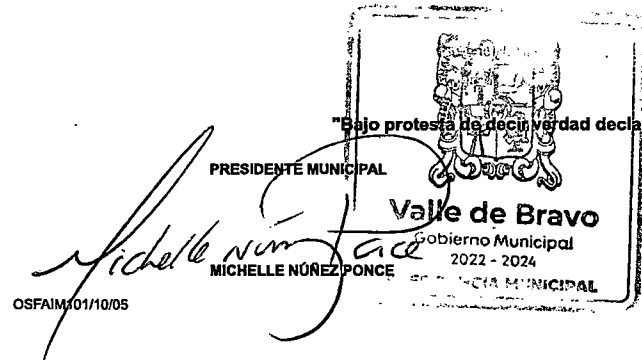 "Bajo protesta de decir verdad decla
PRESIDENTE MUNICIPAL
Valle de Bravo
Gobierno Municipal
2022 - 2024
MUNICIPAL
Michelle Núñez Ponce
MICHELLE NÚÑEZ PONCE
OSFAIM101/10/05